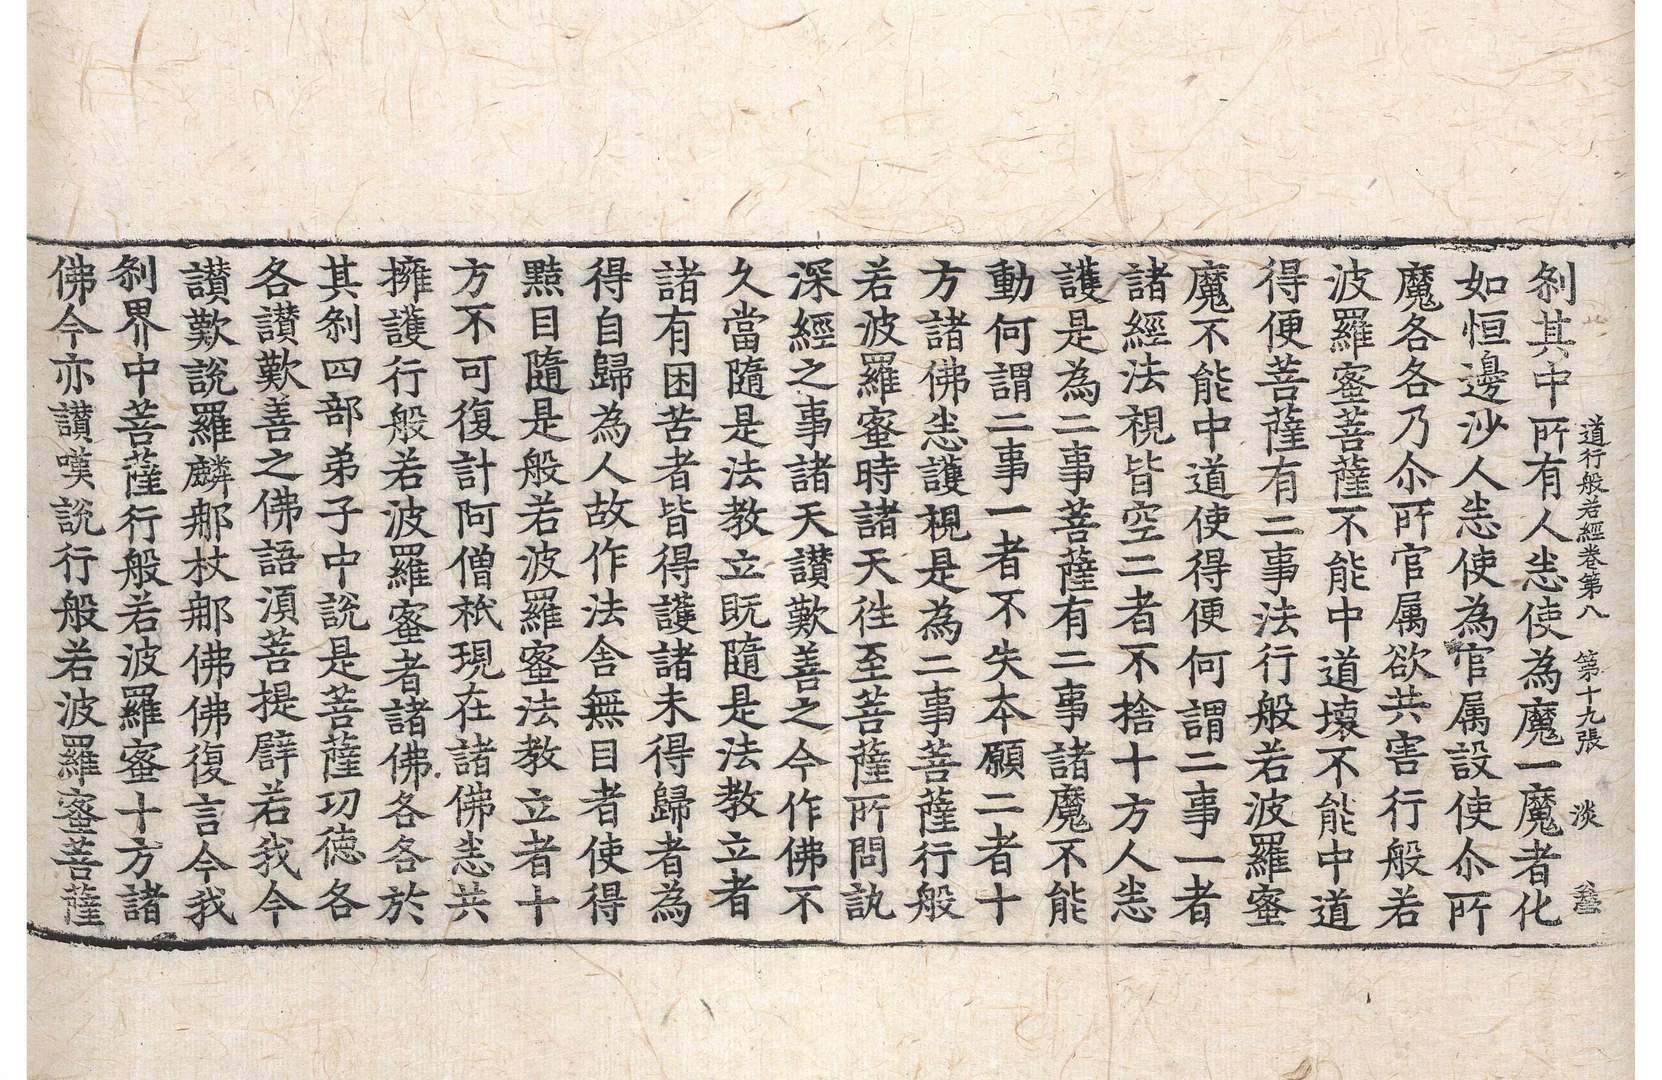 道行般若經卷第八　第十九張　淡
刹其中所有人悉使為魔一魔者化
如恒邊沙人悉使為官属設使尒所
魔各各乃尒所官属欲共害行般若
波羅蜜菩薩不能中道壞不能中道
得便菩薩有二事法行般若波羅蜜
魔不能中道使得便何謂二事一者
諸經法視皆空二者不捨十方人悉
護是為二事菩薩有二事諸魔不能
動何謂二事一者不失本願二者十
方諸佛悉護視是為二事菩薩行般
若波羅蜜時諸天徃至菩薩所問訊
深經之事諸天讃歎善之今作佛不
久當隨是法教立既隨是法教立者
諸有困苦者皆得護諸未得歸者為
得自歸為人故作法舍無目者使得
黠目隨是般若波羅蜜法教立者十
方不可復計阿僧祇現在諸佛悉共
擁護行般若波羅蜜者諸佛各各於
其刹四部弟子中說是菩薩功徳各
各讃歎善之佛語湏菩提譬若我今
讃歎說羅麟那杖那佛佛復言今我
刹界中菩薩行般若波羅蜜十方諸
佛今亦讃嘆說行般若波羅蜜菩薩